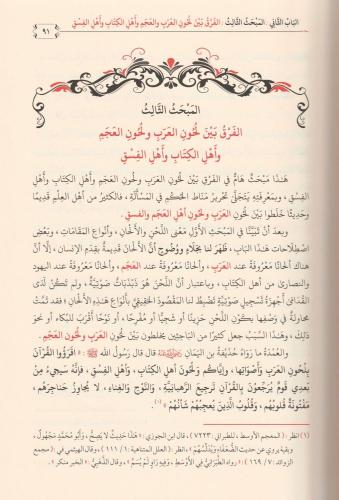 البَابُ الثَّانِي : المَبْحَثُ الثَّالِثُ : الفَرْقُ بَيْنَ لُحُونِ العَرَبِ والعَجَمِ وأَهْلِ الكِتَابِ وأَهْلِ الفِسْقِ
٩١
المَبْحَثُ الثَّالِثُ
الفَرْقُ بَيْنَ لُحُونِ العَرَبِ ولُحُونِ العَجَمِ
وأَهْلِ الكِتَابِ وأَهْلِ الفِسْقِ
هَـٰذَا مَبْحَثٌ هَامٌّ فِي الفَرْقِ بَيْنَ لُحُونِ العَرَبِ ولُحُونِ العَجَمِ وأَهْلِ الكِتَابِ وأَهْلِ
الفِسْقِ ، وبِمَعْرِفَتِهِ يَتَجَلَّىٰ تَحْرِيرُ مَنَاطِ الحُكْمِ فِي المَسْأَلَةِ ، فَالكَثِيرُ مِنْ أَهْلِ العِلْمِ قَدِيمًا
وحَدِيثًا خَلَطُوا بَيْنَ لُحُونِ العَرَبِ ولُحُونِ أَهْلِ العَجَمِ والفِسْقِ .
وبعدَ أَنْ تَبَيَّنَّا فِي المَبْحَثِ الأَوَّلِ مَعْنَى اللَّحْنِ والأَلْحَانِ ، وأَنْوَاعَ المَقَامَاتِ ، وبَعْضَ
اصْطِلَاحَاتِ هَـٰذَا البَابِ ، ظَهَرَ لَنَا بِجَلَاءٍ ووُضُوحٍ أَنَّ الأَلْحَانَ قَدِيمَةٌ بِقِدَمِ الإِنْسَانِ ، إِلَّا أَنَّ
هُنَاكَ أَلْحَانًا مَعْرُوفَةً عِنْدَ العَرَبِ ، وأَلْحَانًا مَعْرُوفَةً عند العَجَمِ ، وأَلْحَانًا مَعْرُوفَةً عند اليهود
والنصارىٰ من أهل الكتاب ، وباعتبار أَنَّ اللَّحْنَ هُوَ ذَبْذَبَاتٌ صَوْتِيَّةٌ ، ولم تكُنْ لَدَى
القُدَامَىٰ أَجْهِزَةُ تَسْجِيلٍ صَوْتِيَّةٌ تَضْبِطُ لنا المَقْصُودَ الحَقِيقِيَّ بِأَنْوَاعِ هَـٰذِهِ الأَلْحَانِ ؛ فقد تَمَّتْ
محاولةٌ فِي وَصْفِهَا بِكَوْنِ اللَّحْنِ حَزِينًا أو شَجِيًّا أو مُفْرِحًا ، أو نَوْحًا أَقْرَبَ لِلْبُكَاءِ أو نحوَ
ذَٰلِكَ ، وهَـٰذَا السَّبَبُ جعلَ كثيرًا من الباحثين يخلطون بَيْنَ لُحُونِ العَرَبِ ولُحُونِ العَجَمِ .
والعُمْدَةُ مَا رَوَاهُ حُذَيْفَةُ بنِ اليَمَانِ قال قال رسول الله ﷺ : ﴿ اقْرَؤُوا القُرْآنَ
بِلُحُونِ العَرَبِ وأَصْوَاتِهَا ، وإِيَّاكُمْ ولُحُونَ أَهْلِ الكِتَابِ ، وأَهْلِ الفِسْقِ ، فَإِنَّهُ سَيَجِيءُ مِنْ
بَعْدِي قَوْمٌ يُرَجِّعُونَ بِالقُرْآنِ تَرْجِيعَ الرَّهْبَانِيَّةِ ، والنَّوْحِ والغِنَاءِ ، لَا يُجَاوِزُ حَنَاجِرَهُمْ ،
مَفْتُونَةٌ قُلُوبُهُمْ ، وقُلُوبُ الَّذِينَ يُعْجِبُهُمْ شَأْنُهُمْ ﴾ (١).
(١) انظر : المعجم الأوسط ، للطبراني (٧٢٢٣) ، قال ابن الجوزي : «هَذَا حَدِيثٌ لا يَصِحُّ ، وأبو محمدٍ مَجْهُولٌ ،
وبقية يروي عن حديث الضُّعَفَاءِ ويُدَلِّسُهُمْ» ، انظر : (العلل المتناهية : ١ / ١١١) ، وقال الهيثمي في (مجمع
الزوائد : ٧ / ١٦٩) «رواه الطَّبَرَانِيُّ فِي الأَوْسَطِ ، وفِيهِ رَاوٍ لَمْ يُسَمَّ» ، وقال الذَّهَبِيُّ : «الخبر منكر» .